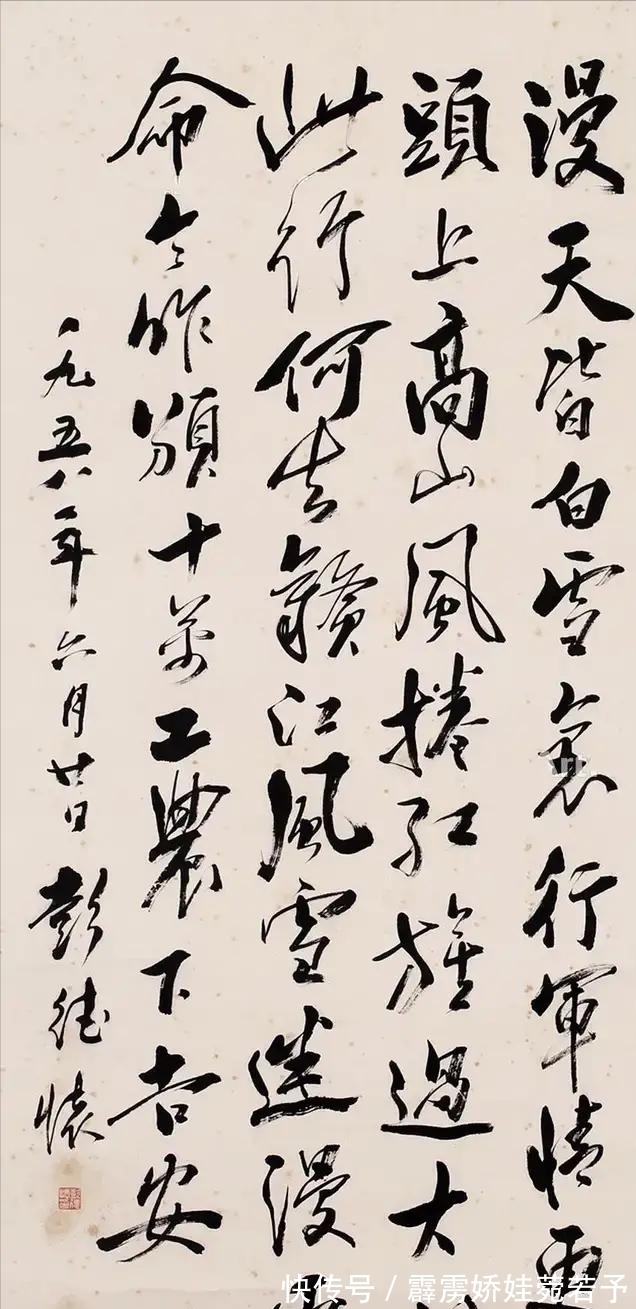 漫天皆白雪裏行軍情更
頭上高山風捲紅旗過大
此行何去贛江風雪迷漫
命令昨頒十萬工農下吉安
一九五八年六月廿日彭德懷
快传号 / 霹雳娇娃菀若予